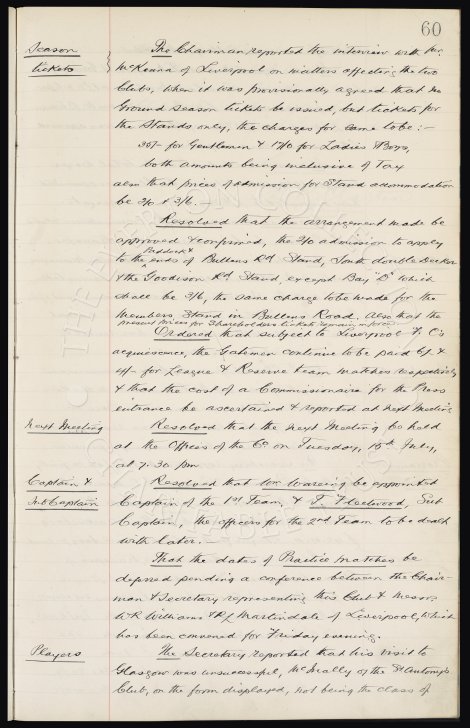 60
Season
tickets
The Chairman reported the interview with Mr.
McKenna of Liverpool on matters affecting the two
Clubs, when it was provisionally agreed that no
Ground Season tickets be issued, but tickets for
the Stands only, the charges for same to be :-
30/- for Gentlemen & 17/6 for Ladies & Boys,
both amounts being inclusive of Tax
also that prices of admission for Stand accommodation
be 2/6 & 3/6.
Resolved that the arrangement made be
approved & confirmed, the 2/6 admission to apply
Paddock &
to the ends of Bullens Rd Stand, South double Decker
& the Goodison Rd. Stand, except Bay "D" which
shall be 3/6, the same charge to be made for the
Members Stand in Bullens Road. Also that the
present prices for Shareholders tickets remain in force
Ordered that subject to Liverpool F. C's
acquiescence, the Gatemen continue to be paid 6/- &
4/- for League & Reserve team matches respectively
& that the cost of a Commissionaire for the Press
entrance be ascertained & reported at next Meeting
Next Meeting
Resolved that the next Meeting be held
at the Offices of the Co on Tuesday, 15th July,
at 7.30 pm
Captain &
Sub Captain
Resolved that Mr. Wareing be appointed
Captain of the 1st Team, & T. Fleetwood, Sub
Captain, the officers for the 2nd Team to be dealt
with later.
That the dates of Practice matches be
deferred pending a conference between the Chair-
man & Secretary representing this Club & Messrs
W R Williams & R L Martindale of Liverpool, which
has been convened for Friday evening.
Players
The Secretary reported that his visit to
Glasgow was unsuccessful, McInally of the St Anthony's
Club, on the form displayed, not being the class of